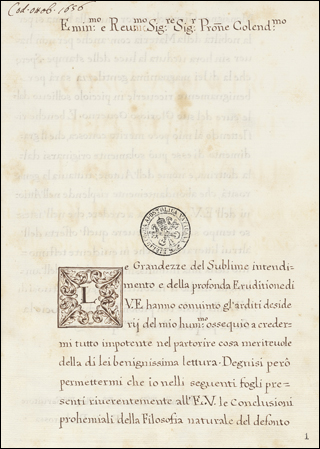 Cod. Ottob. 1656
Emin:mo e Reu:mo Sig:re Sig:r Prone Colend:mo
Le Grandezze del Sublime intendi-
mento e della profonda Eruditione di
V.E hanno conuinto gl'arditi deside
rij del mio hum:mo ossequio a creder-
mi tutto impotente nel partorire cosa meriteuole
della di lei benignissima lettura. Degnisi però
permettermi che io nelli seguenti fogli pre=
senti riuerentemente all'E.V. le Conclusioni
prohemiali della Filosofia naturale del defonto
1